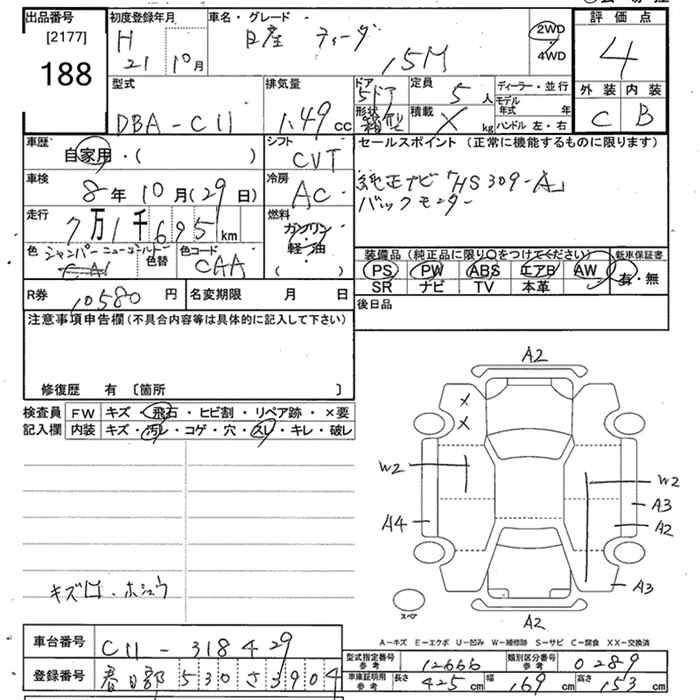 出品番号
[2177]
188
初度登録年月
H
21 10月
車名・グレード
日産 ティーダ
15M
2WD
4WD
評価点
4
外装 内装
C B
型式
DBA-C11
排気量
1.49 cc
ドア
5ドア
形状
箱型
定員
5人
積載
X kg
ディーラー・並行
モデル年式 年
ハンドル 左・右
車歴
自家用・( )
シフト
CVT
セールスポイント (正常に機能するものに限ります)
純正ナビ「HS309-A」
バックモニター
車検
8年 10月(29日)
冷房
AC
走行
7万1千695km
燃料
ガソリン
軽油
( )
色
シャンパーニューゴールド
色替
色コード
CAA
装備品 (純正品に限り○をつけてください)
新車保証書
PS PW ABS エアB AW
有・無
SR ナビ TV 本革
R券
10580 円
名変期限 月 日
後日品
注意事項申告欄 (不具合内容等は具体的に記入して下さい)
修復歴 有 〔箇所 〕
検査員
記入欄
FW キズ・飛石・ヒビ割・リペア跡・×要
内装 キズ・汚レ・コゲ・穴・スレ・キレ・破レ
A2
W2
A4
W2
A3
A2
A3
A2
スペア
A-キズ E-エクボ U-凹み W-補修跡 S-サビ C-腐食 XX-交換済
車台番号
C11-318429
登録番号
春日部 530 さ 3904
型式指定番号
参考
12666
類別区分番号
参考
0289
車庫証明用
参考
長さ 425 cm
幅 169 cm
高さ 153 cm